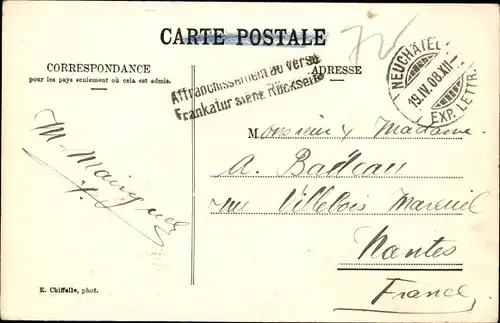 CARTE POSTALE
CORRESPONDANCE
pour les pays seulement où cela est admis.
ADRESSE
Affranchissement au verso
Frankatur siehe Rückseite
NEUCHÂTEL
19.IV.08.XII-
EXP. LETTR.
Monsieur & Madame
A. Badeau
rue Villebois Mareuil
Nantes
France
M.
E. Chiffelle, phot.